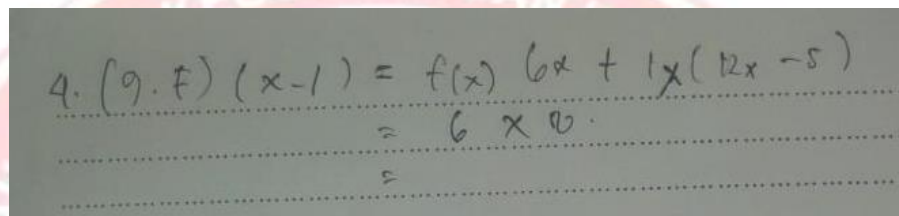 4. (g.f) (x-1) = f(x) 6x + 1x(12x -5)
= 6 x 2.
=